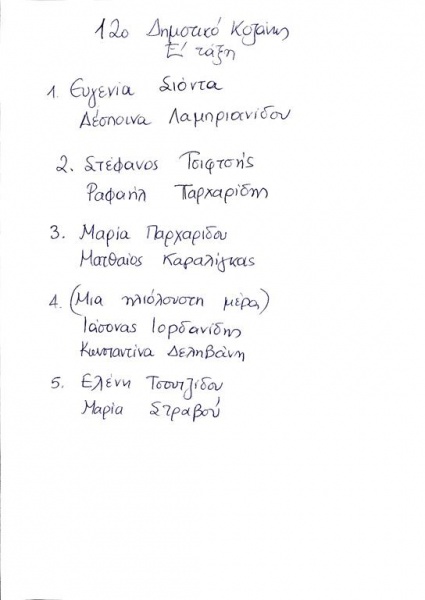 12ο Δημοτικό Κοζάνης
Ε' τάξη
1. Ευγενία Σιόντα
Δέσποινα Λαμπριανίδου
2. Στέφανος Τσιφτσής
Ραφαήλ Παρχαρίδης
3. Μαρία Παρχαρίδου
Ματθαίος Καραλίγκας
4. (Μια ηλιόλουστη μέρα)
Ιάσονας Ιορδανίδης
Κωνσταντίνα Δεληβάνη
5. Ελένη Τσουτζίδου
Μαρία Στραβού